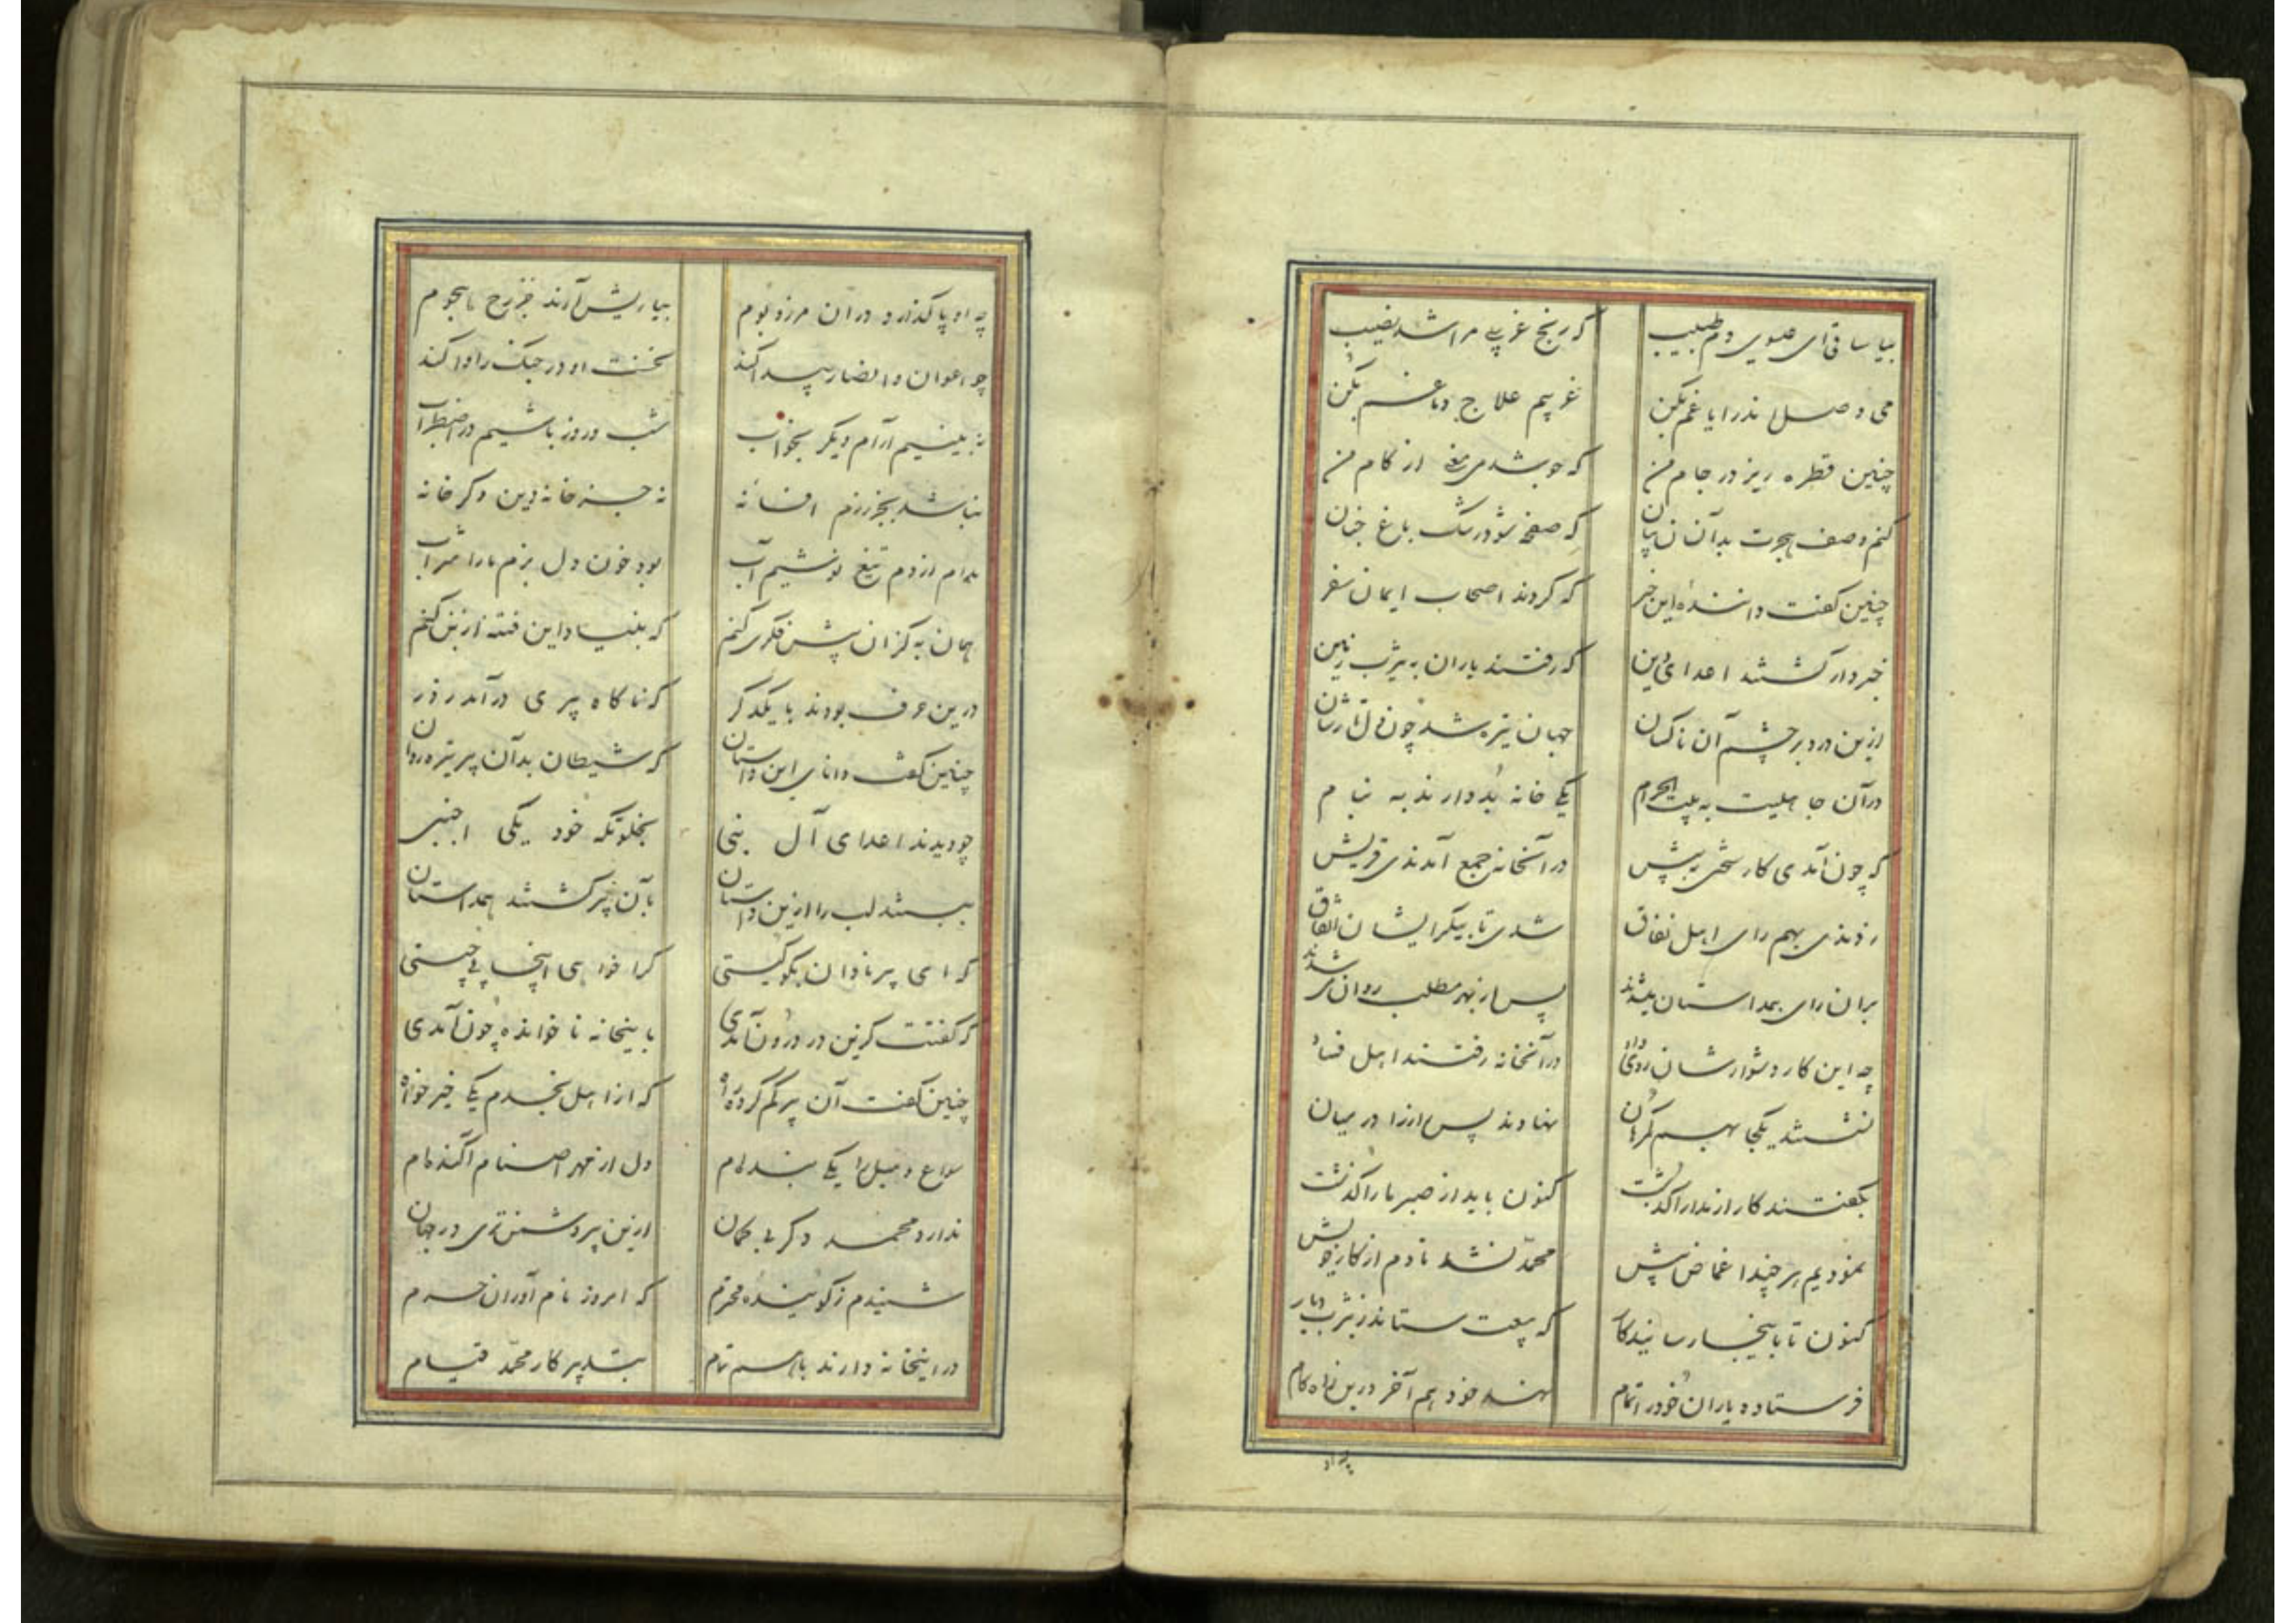 بیا ساقی ای عیسوی دم طبیب که رنج غریبی مرا شد نصیب
می وصل اندر ایاغم بکن غریبم علاج دماغم بکن
چنین قطره ریز در جام من که جوشد می از کام من
کنم وصف هجرت بدآن بیان که صفحه شود رشک باغ جنان
چنین گفت دانندهٔ این خبر که کردند اصحاب ایمان سفر
خبردار گشتند اعدای دین که رفتند یاران به یثرب زمین
ازین درد بر چشم آن ناکسان جهان تیره شد چون دل تارشان
در آن جاهلیت به بیت الحرام یکی خانه بد دارندبه نام
که چون آمدی کار سختی به پیش در آنخانه جمع آمدندی قریش
زدندی بهم رای اهل نفاق شدی تا به یکرایشان اتفاق
بران رای همداستان میشدند پس از بهر مطلب روان میشدند
چه این کار دشوارشان روی داد در آنخانه رفتند اهل فساد
نشستند یکجا بهم سرگران نهادند پس راز را در میان
بگفتند کار از مدارا گذشت کنون باید از صبر ما را گذشت
نمودیم هر چند اغماض پیش محمد نشد نادم از کار خویش
کنون تا باینجا رسانید کار که بیعت ستاند ز یثرب دیار
فرستاده یاران خود را تمام نهد خود هم آخر درین راه گام
چه او
چه او پا گذارد در آن مرز و بوم بیاریش آرند خزرج هجوم
چو اعوان و انصار پیدا کند نخست او در جنگ را وا کند
نه بینیم آرام دیگر بخواب شب و روز باشیم در اضطراب
نباشد بجز رزم افسانهٔ نه جز خانهٔ زین دگر خانهٔ
مدام از دم تیغ نوشیم آب بود خون دل بزم ما را شراب
همان به کزان پیش فکری کنیم که بنیاد این فتنه از بن کنیم
درین حرف بودند با یکدگر که ناگاه پیری درآمد ز در
چنین گفت دانای این داستان که شیطان بد آن پیر تیره روان
چو دیدند اعدای آل نبی بخلوتگه خود یکی اجنبی
ببستند لب را ازین داستان بآن پیر گشتند همداستان
که ای پیر نادان بگو کیستی کرا خواهی اینجا پی چیستی
که گفتت کزین در درون آمدی باینخانه ناخوانده چون آمدی
چنین گفت آن پیر گم کرده راه که از اهل نجدم یکی خیرخواه
سواع و هبل را یکی بنده‌ام دل از مهر اصنام آکنده‌ام
ندارد محمد دگر بی گمان ازین پیر دشمن‌تری در جهان
شنیدم ز گویندهٔ محترم که امروز نام‌آوران حرم
در اینخانه دارند باهم تمام بتدبیر کار محمد قیام